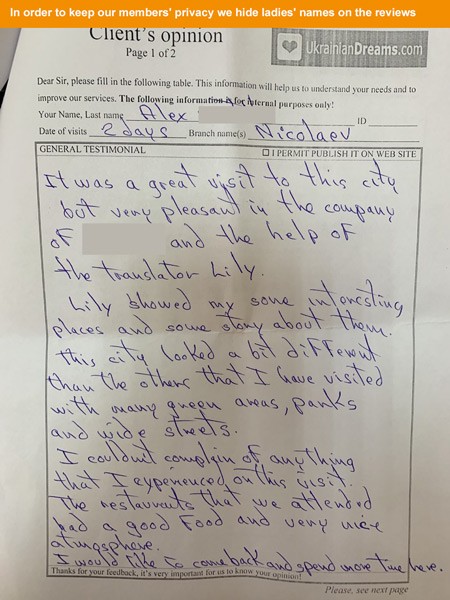 In order to keep our members' privacy we hide ladies' names on the reviews
Client's opinion
Page 1 of 2
UkrainianDreams.com
Dear Sir, please fill in the following table. This information will help us to understand your needs and to
improve our services. The following information is for internal purposes only!
Your Name, Last name Alex ID
Date of visits 2 days Branch name(s) Nicolaev
GENERAL TESTIMONIAL I PERMIT PUBLISH IT ON WEB SITE
It was a great visit to this city
but very pleasant in the company
of and the help of
the translator Lily.
Lily showed my some interesting
places and some story about them.
this city looked a bit different
than the others that I have visited
with many green areas, parks
and wide streets.
I couldn't complain of anything
that I experienced on this visit.
The restaurants that we attended
had a good food and very nice
atmosphere.
I would like to come back and spend more time here.
Thanks for your feedback, it's very important for us to know your opinion!
Please, see next page